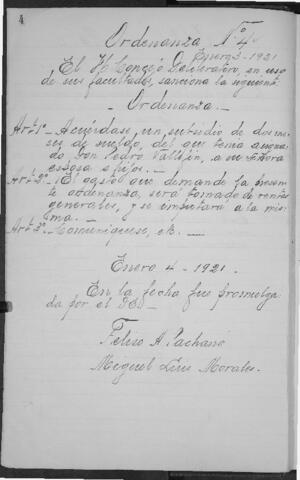 4
Ordenanza Nº 4
Enero 3-1921
El H. Concejo Deliberativo, en uso
de sus facultades, sanciona la siguiente
- Ordenanza. -
Art. 1º - Acúerdase, un subsidio de dos me-
ses de sueldo, del que tenía asigna-
do Don Pedro, a su Señora
esposa e hijos. -
Art. 2º - El gasto que demande la presen-
te ordenanza, será tomado de rentas
generales, y se imputará a la mis-
ma. -
Art. 3º - Comuníquese, etc. -
Enero 4 - 1921.
En la fecha fue promulga-
da por el -
A. Pachano
Miguel Luis Morales.